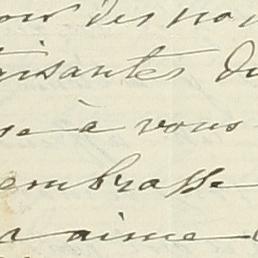 des no
isantes du
se à vous
embrasse
aime